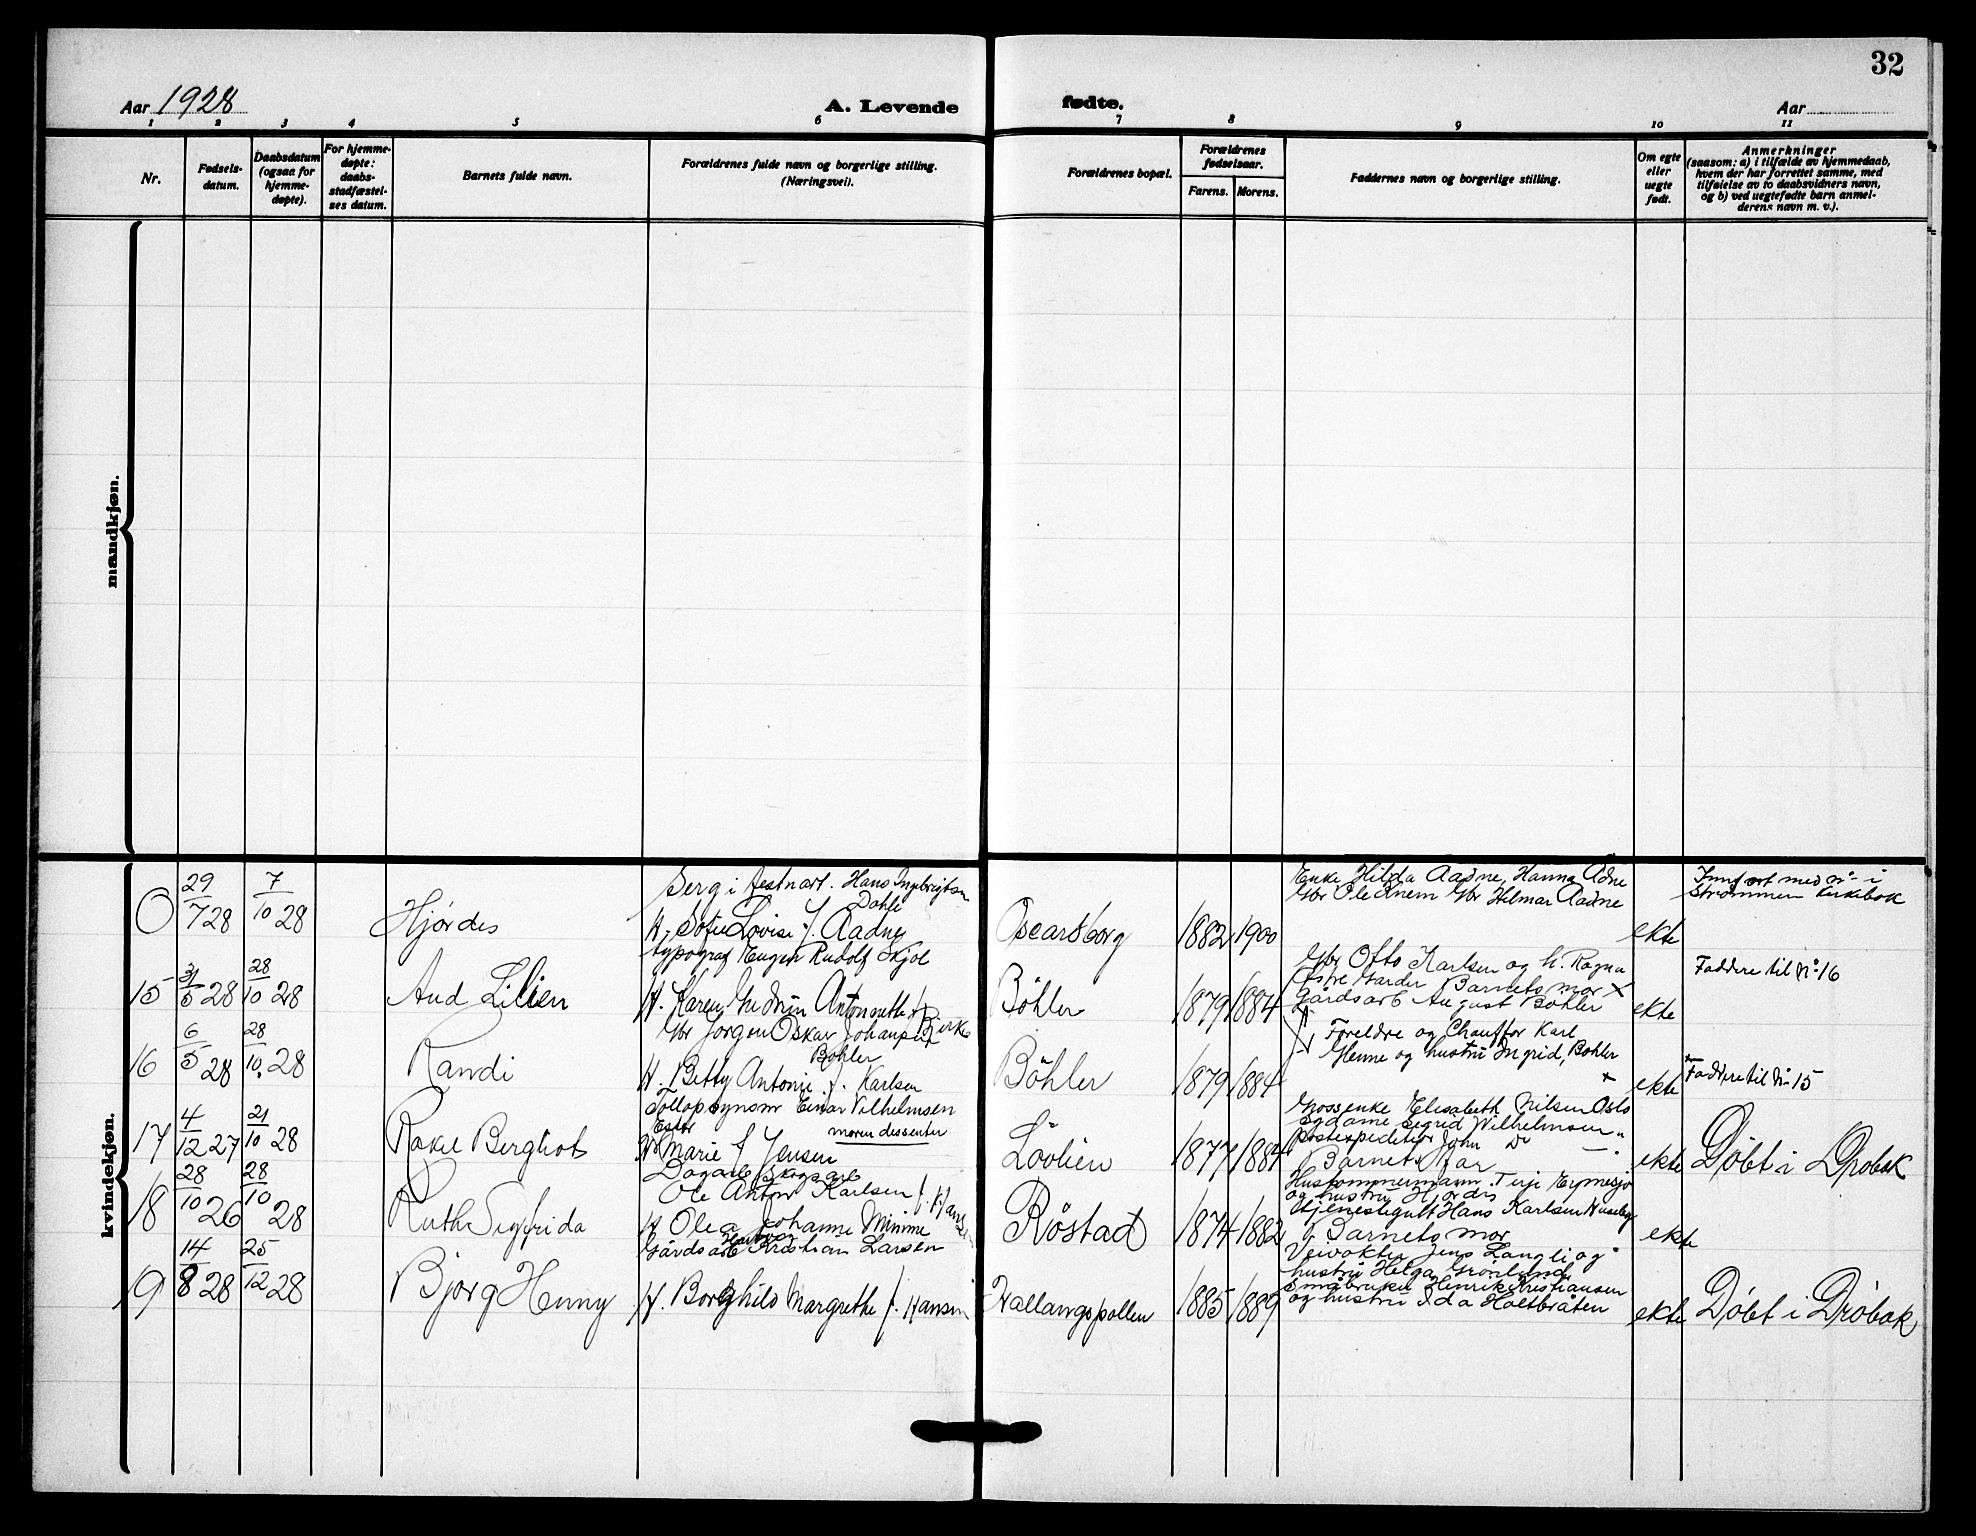 32
Aar 1928
A. Levende
fødte.
Aar
1 2 3 4 5 6 7 8 9 10 11
Nr.
Fødsels-
datum.
Daabsdatum
(ogsaa for
hjemme-
døpte).
For hjemme-
døpte:
daabs-
stadfæstel-
ses datum.
Barnets fulde navn.
Forældrenes fulde navn og borgerlige stilling.
(Næringsvei).
Forældrenes bopæl.
Forældrenes
fødselsaar.
Farens. Morens.
Faddernes navn og borgerlige stilling.
Om egte
eller
uegte
født.
Anmerkninger
(saasom: a) i tilfælde av hjemmedaab,
hvem der har forrettet samme, med
tilføielse av to daabsvidners navn,
og b) ved uegtefødte barn anmel-
derens navn m. v.).
mandkjøn.
kvindekjøn.
0
29/7 28
7/10 28
Hjørdes
Serg i festnart. Hans Ingebrigtsen
Dahle
H. Sofie Lovise f. Aadne
Oscarsborg
1882 1900
Enke Hilda Aadne, Hanna Adne
Gbr Ole Knem Gbr Hilmar Aadne
ekte
Innført med nr - i
Strømmen kirkebok
15
31/5 28
28/10 28
Aud Lilien
typograf Eugen Rudolf Skjøl
H. Karen Gudrun Antonette f. Birke
Böhler
1879 1884
Gbr Otto Karlsen og h. Ragna
Østre Garder Barnets mor x
Gårdsarb August Böhler
ekte
Faddere til Nr 16
16
6/5 28
28/10 28
Randi
Gbr Jørgen Oskar Johansen
Bøhler
H. Betty Antonie f. Karlsen
Böhler
1879 1884
Foreldre og Chauffør Karl
Glenne og hustru Ingrid, Bøhler
x
ekte
Faddere til Nr 15
17
4/12 27
21/10 28
Rakel Bergliot
Tollopsynsm Einar Vilhelmsen
Ester
moren dessenter
H Marie f Jensen
Lövlien
1877 1884
Grossenke Elisabeth Nilsen Oslo
Sydame Sigrid Wilhelmsen "
Postexpeditør John Do —
Barnets far
ekte
Døbt i Drøbak
18
28/10 26
28/10 28
Ruth Sigfrida
Dagarb Skogsarb
Ole Anton Karlsen
H Olea Johanne Minime f. Hansen
Röstad
1874 1882
og hustru Hjørdis
Tjenestegutt Hans Karlsen Huseby
Barnets mor
ekte
19
14/8 28
25/12 28
Bjørg Henny
Gårdsarb Kristian Larsen
H. Borghild Margrethe f. Hansen
Hallangspollen
1885 1889
Veivokter Jens Langli og
hustru Helga Grønlund
Småbruker Henrik Kristiansen
og hustru Ida Holtbråten
ekte
Døbt i Drøbak